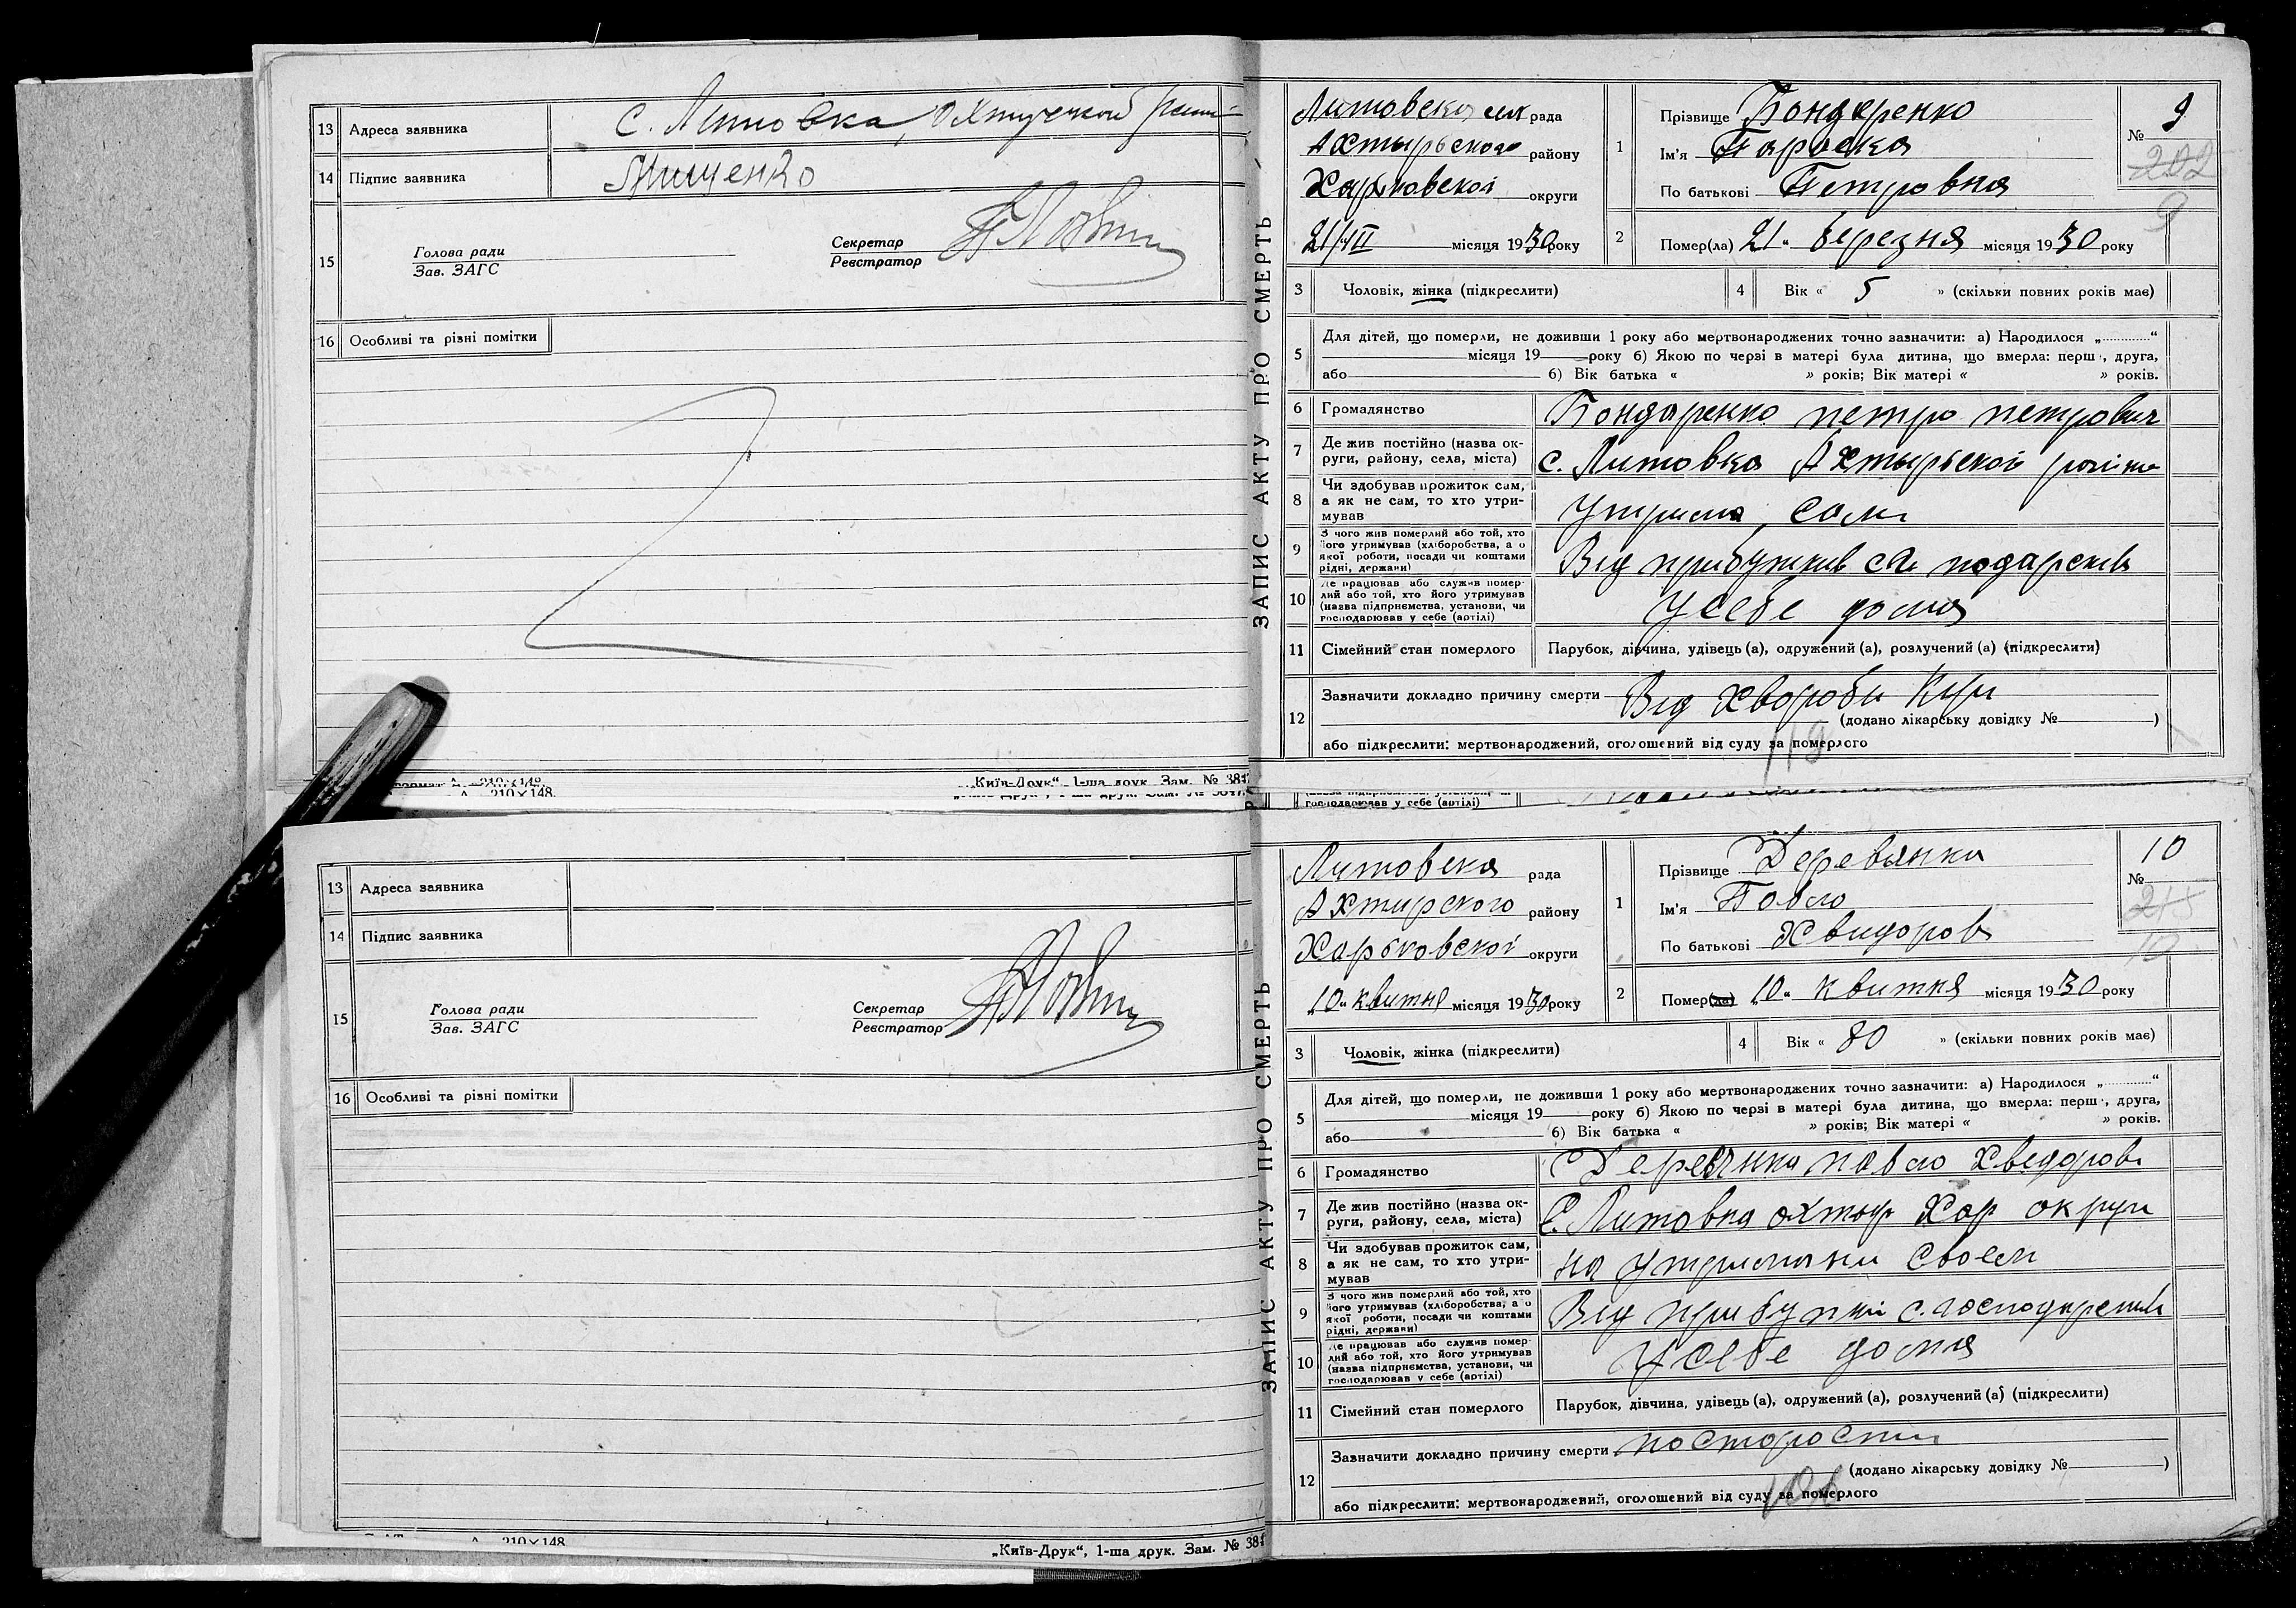 13 Адреса заявника с. Литовка, Охтирской
14 Підпис заявника Мищенко
15 Голова ради
Зав. ЗАГС
Секретар
Реєстратор
16 Особливі та різні помітки
„Київ-Друк“, 1-ша друк. Зам. № 381
210×148.
ЗАПИС АКТУ ПРО СМЕРТЬ
Литовска рада
Ахтырьского району
Харьковской округи
21/III місяця 1930 року
1 Прізвище Бондаренко
Ім'я Параска
По батькові Петровна
№ 9
202
9
2 Помер(ла) 21 „ березня місяця 1930 року
3 Чоловік, жінка (підкреслити)
4 Вік « 5 » (скільки повних років має)
5 Для дітей, що померли, не доживши 1 року або мертвонароджених точно зазначити: а) Народилося „............“
місяця 19 року б) Якою по черзі в матері була дитина, що вмерла: перш , друга,
або б) Вік батька « » років; Вік матері « » років.
6 Громадянство Бондаренко петро петрович
7 Де жив постійно (назва ок-
руги, району, села, міста) с. Литовка Ахтырьской
8 Чи здобував прожиток сам,
а як не сам, то хто утри-
мував
9 З чого жив померлий або той, хто
його утримував (хліборобства, а о
якої роботи, посади чи коштами
рідні, держави) Від
10 Де працював або служив помер-
лий або той, хто його утримував
(назва підприємства, установи, чи
господарював у себе (артілі) У себе дома
11 Сімейний стан померлого Парубок, дівчина, удівець (а), одружений (а), розлучений (а) (підкреслити)
12 Зазначити докладно причину смерти Від хвороби Кир
(додано лікарську довідку № )
або підкреслити: мертвонароджений, оголошений від суду за померлого
119
господарював у себе (артілі)
13 Адреса заявника
14 Підпис заявника
15 Голова ради
Зав. ЗАГС
Секретар
Реєстратор
16 Особливі та різні помітки
210×148
„Київ-Друк“, 1-ша друк. Зам. № 381
ЗАПИС АКТУ ПРО СМЕРТЬ
Литовска рада
Ахтирского району
Харьковской округи
„10 „ квитня місяця 1930 року
1 Прізвище Деревянки
Ім'я Павло
По батькові Хвидоров
№ 10
215
10
2 Помер(ла) „10 „ квитня місяця 1930 року
3 Чоловік, жінка (підкреслити)
4 Вік « 80 » (скільки повних років має)
5 Для дітей, що померли, не доживши 1 року або мертвонароджених точно зазначити: а) Народилося „............“
місяця 19 року б) Якою по черзі в матері була дитина, що вмерла: перш , друга,
або б) Вік батька « » років; Вік матері « » років.
6 Громадянство Деревянка павло Хведоров
7 Де жив постійно (назва ок-
руги, району, села, міста) С. Литовка охтыр Хар округи
8 Чи здобував прожиток сам,
а як не сам, то хто утри-
мував на утримани своем
9 З чого жив померлий або той, хто
його утримував (хліборобства, а о
якої роботи, посади чи коштами
рідні, держави) Від
10 Де працював або служив помер-
лий або той, хто його утримував
(назва підприємства, установи, чи
господарював у себе (артілі) У себе дома
11 Сімейний стан померлого Парубок, дівчина, удівець (а), одружений (а), розлучений (а) (підкреслити)
12 Зазначити докладно причину смерти по старости
(додано лікарську довідку № )
або підкреслити: мертвонароджений, оголошений від суду за померлого